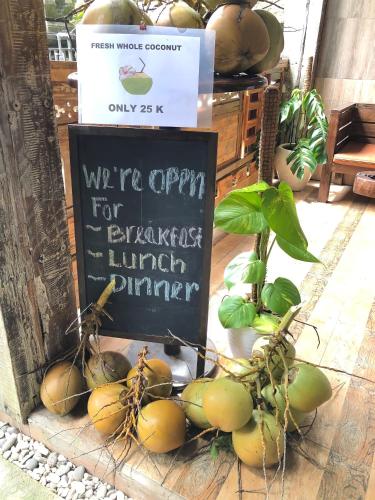 FRESH WHOLE COCONUT
ONLY 25 K
We're open
For
- Breakfast
- Lunch
- Dinner